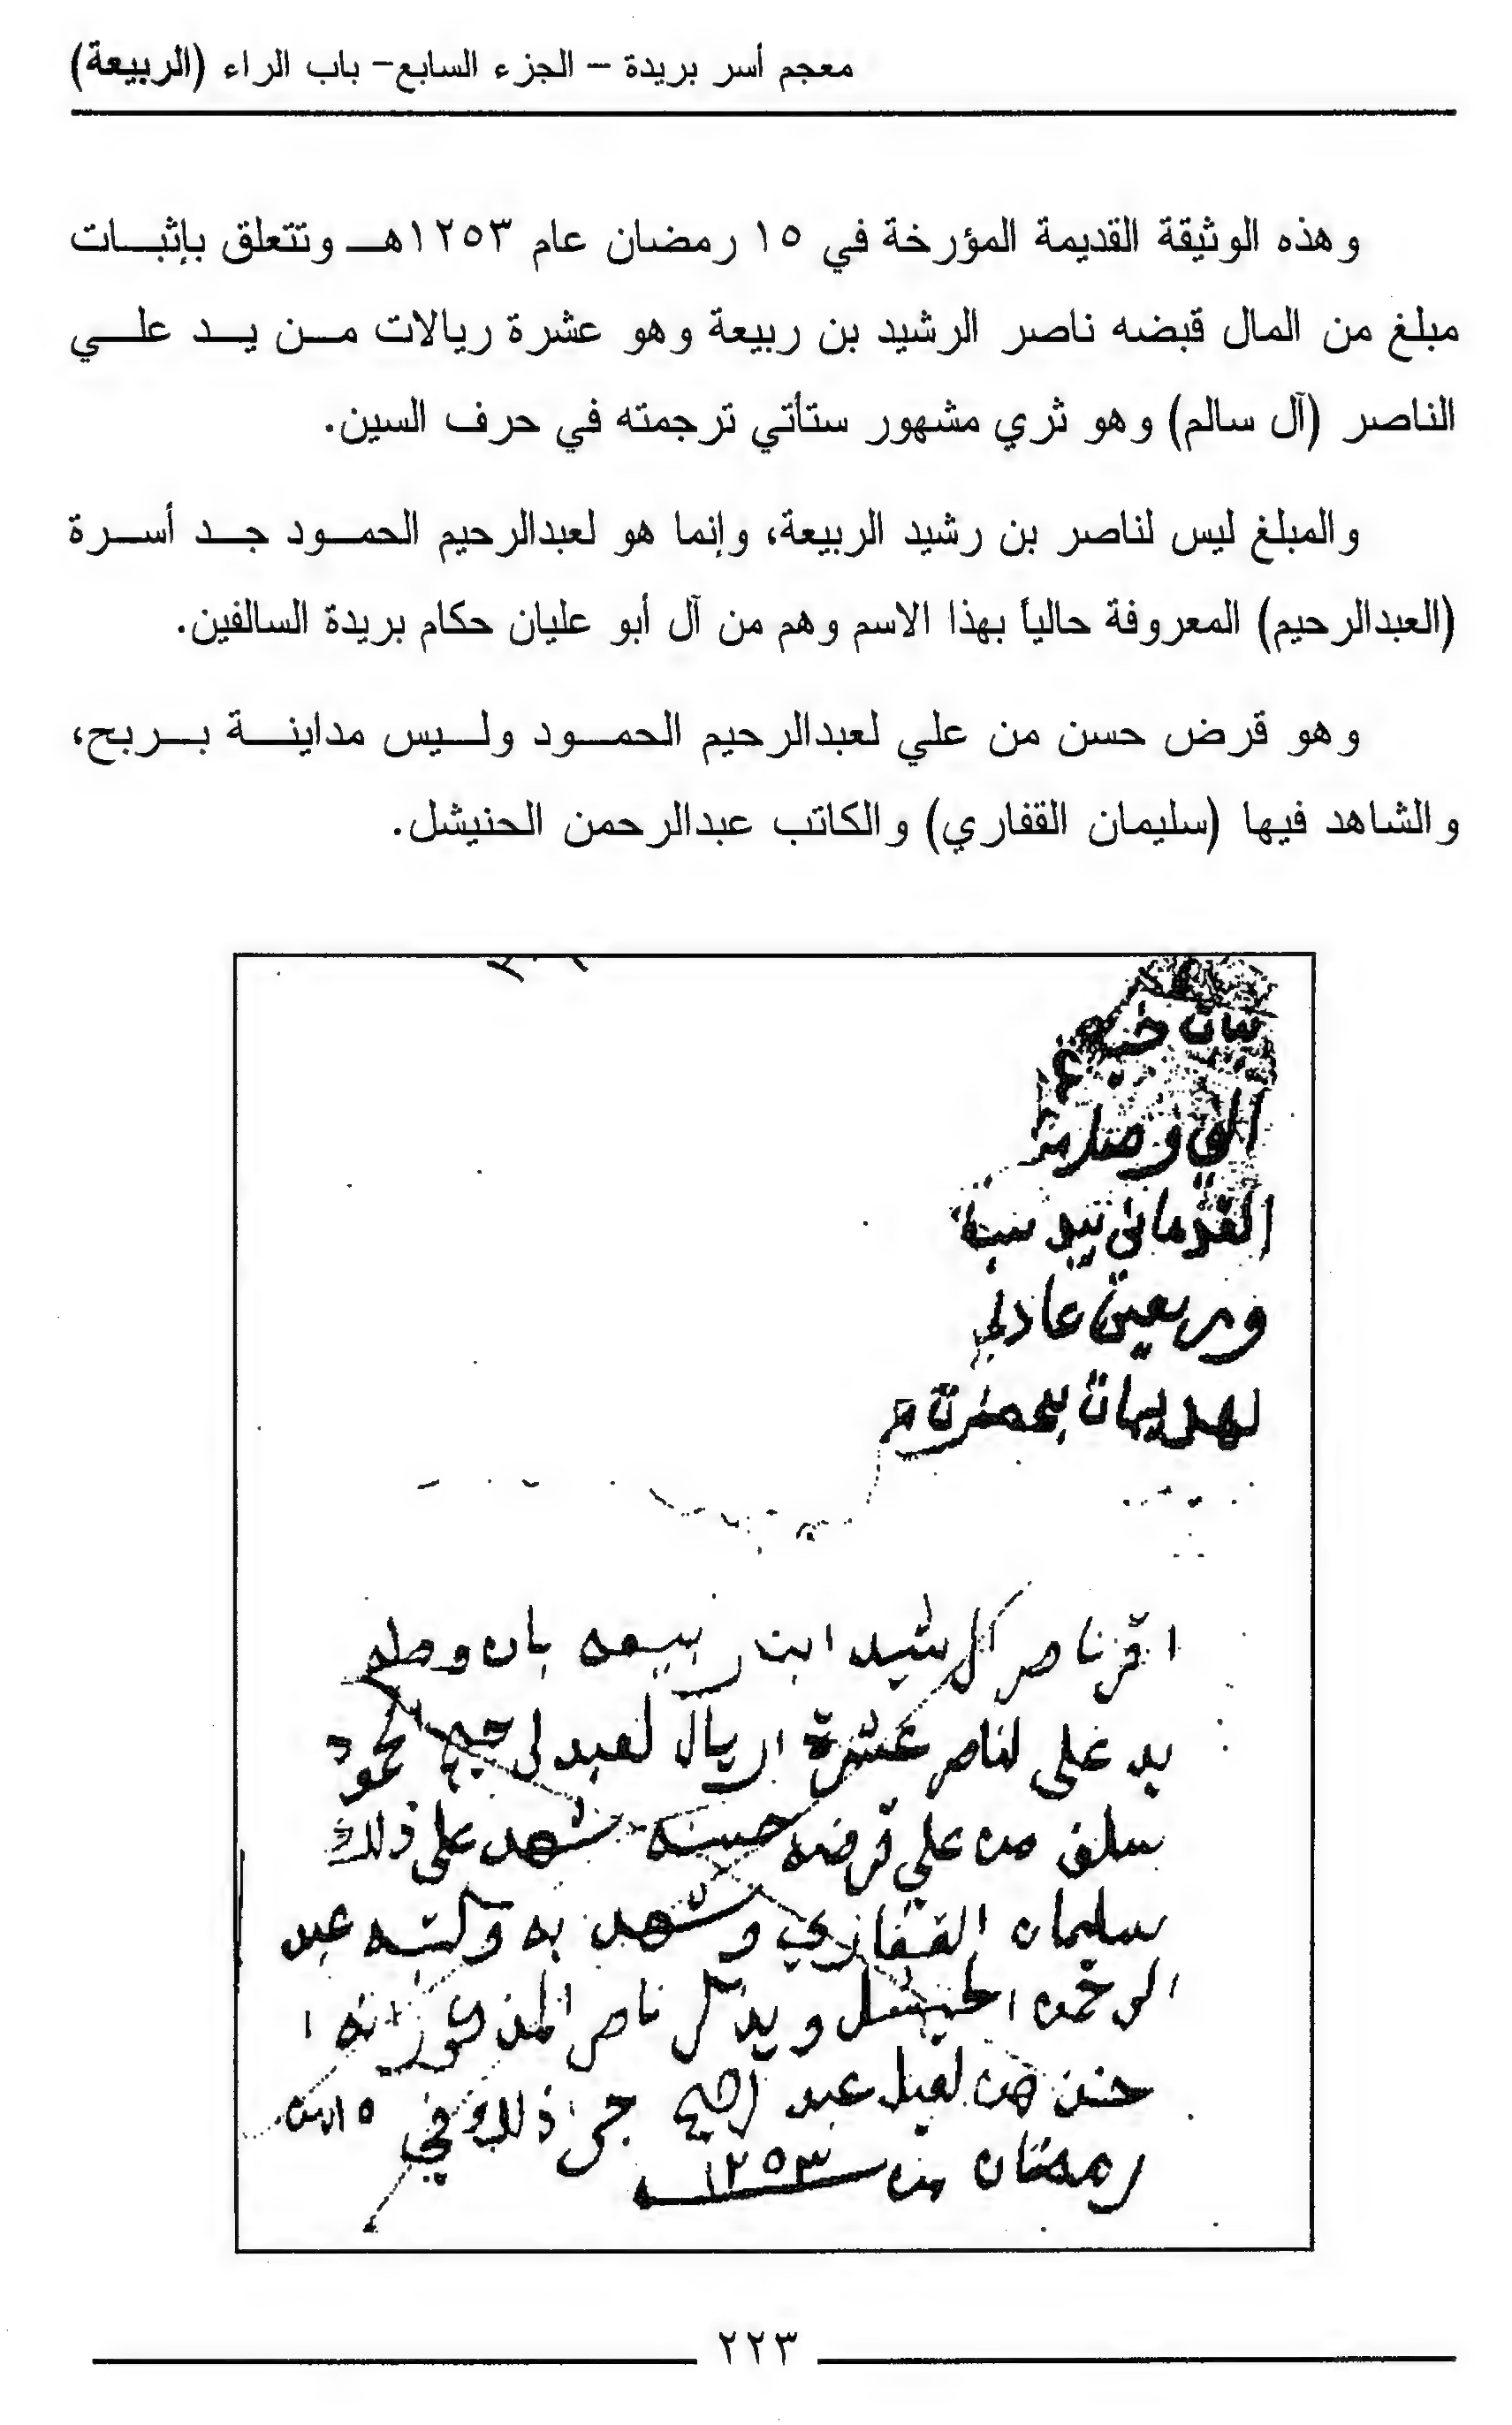 معجم أسر بريدة – الجزء السابع- باب الراء (الربيعة)
وهذه الوثيقة القديمة المؤرخة في ١٥ رمضان عام ١٢٥٣هـ وتتعلق بإثبات
مبلغ من المال قبضه ناصر الرشيد بن ربيعة وهو عشرة ريالات من يد علي
الناصر (آل سالم) وهو ثري مشهور ستأتي ترجمته في حرف السين.
والمبلغ ليس لناصر بن رشيد الربيعة، وإنما هو لعبدالرحيم الحمود جد أسرة
(العبدالرحيم) المعروفة حالياً بهذا الاسم وهم من آل أبو عليان حكام بريدة السالفين.
وهو قرض حسن من علي لعبدالرحيم الحمود وليس مداينة بربح،
والشاهد فيها (سليمان القفاري) والكاتب عبدالرحمن الحنيشل.
اقر ناصر الرشيد ابن ربيعه بان وصله
يد علي لناصر عشرة اريال لعبدلرحيم لحمود
سلف من علي قرضه حسنه شهد على ذلك
سليمان القفاري وشهد به وكتبه عبد
الرحمن الحنيشل ويذكر ناصر المذكور انه
من عبد ارحيم جرى ذلك في ١٥ من
رمضان سنه ١٢٥٣
٢٢٣